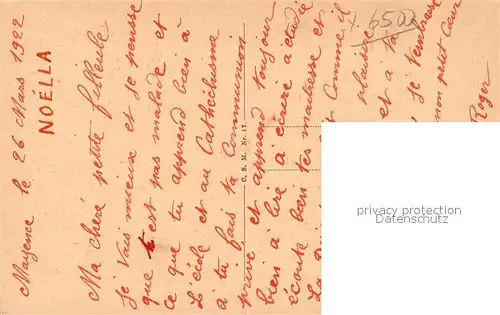 Mayence le 26 Mars 1922
NOËLLA
Ma chère petite filleule
Je vais mieux et je pense
que tu est pas malade et
ce que tu apprend bien à
L'école et au Cathéchisme
a tu fais ta Communion
privé et apprend toujour
bien à lire à écrire a étudié
écoute bien tes maitresse et
comme il
plaisir
et à ta
Je t'embrasse
mon petit cœur
Roger
C. S. M. Nr. 17.
6502
privacy protection
VorschauBild